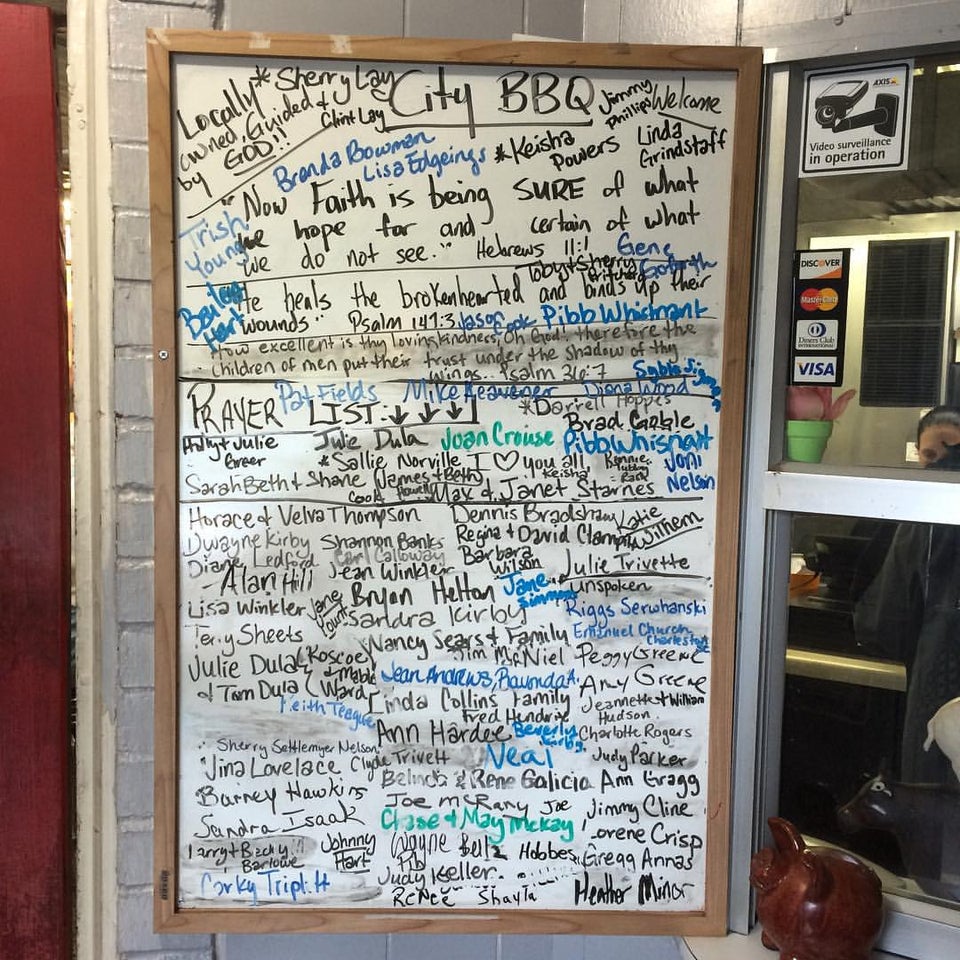 Locally
owned, Guided &
by GOD!!
* Sherry Lay
Clint Lay
City BBQ
Jimmy
Phillips
Welcome
Brenda Bowman
Lisa Edgeings
*Keisha
Powers
Linda
Grindstaff
"Now Faith is being SURE of what
we hope for and certain of what
we do not see." Hebrews 11:1
Trish
Young
Gene
Toby & Sherry
He heals the brokenhearted and binds up their
wounds" Psalm 147:3
Jason
Cook
Pibb Whisnant
How excellent is thy lovingkindness, Oh God! therefore the
Children of men put their trust under the shadow of thy
wings. Psalm 36:7
PRAYER LIST:
Pat Fields
Mike Reavener
Diana Wood
*Darrell Hoppes
Brad Cable
Julie
Greer
Julie Dula
Joan Crouse
Pibb Whisnant
*Sallie Norville
I ♡ you all
Keisha
Joni
Nelson
Sarah Beth & Shane
James & Beth
Cook
Max & Janet Starnes
Horace & Velva Thompson
Dennis Bradshaw
Katie
Wilhem
Dwayne Kirby
Shannon Banks
Regina & David Clampitt
Diane Ledford
Carl Calloway
Barbara
Wilson
Julie Trivette
Alan Hill
Jean Winkler
Unspoken
Lisa Winkler
Jane
Yount
Bryan Helton
Jane
Simmons
Riggs Serwhanski
Sandra Kirby
Emanuel Church
Charleston
Terry Sheets
Nancy Sears & Family
Jim McNiel
Peggy Greene
Julie Dula
& Tom Dula
(Roscoe
& Mable
Ward)
Jean Andrews, Raunda A.
Amy Greene
Keith Teague
Linda Collins Family
Jeannette & William
Hudson
Fred Hendrix
Ann Hardee
Beverly
Kirby
Charlotte Rogers
Sherry Settlemyer Nelson
Neal
Judy Parker
Jina Lovelace
Clyde Trivett
Belinda & Rene Galicia
Ann Gragg
Barney Hawkins
Joe McRary
Joe
Jimmy Cline
Sandra Isaak
Chase & May McKay
Lorene Crisp
Larry & Becky
Barlowe
Johnny
Hart
Wayne Belz
Hobbes
Gregg Annas
Pib
Corky Triplitt
Judy Keller
Renee Shayla
Heather Minor
AXIS
Video surveillance
in operation
DISCOVER
MasterCard
Diners Club
INTERNATIONAL
VISA